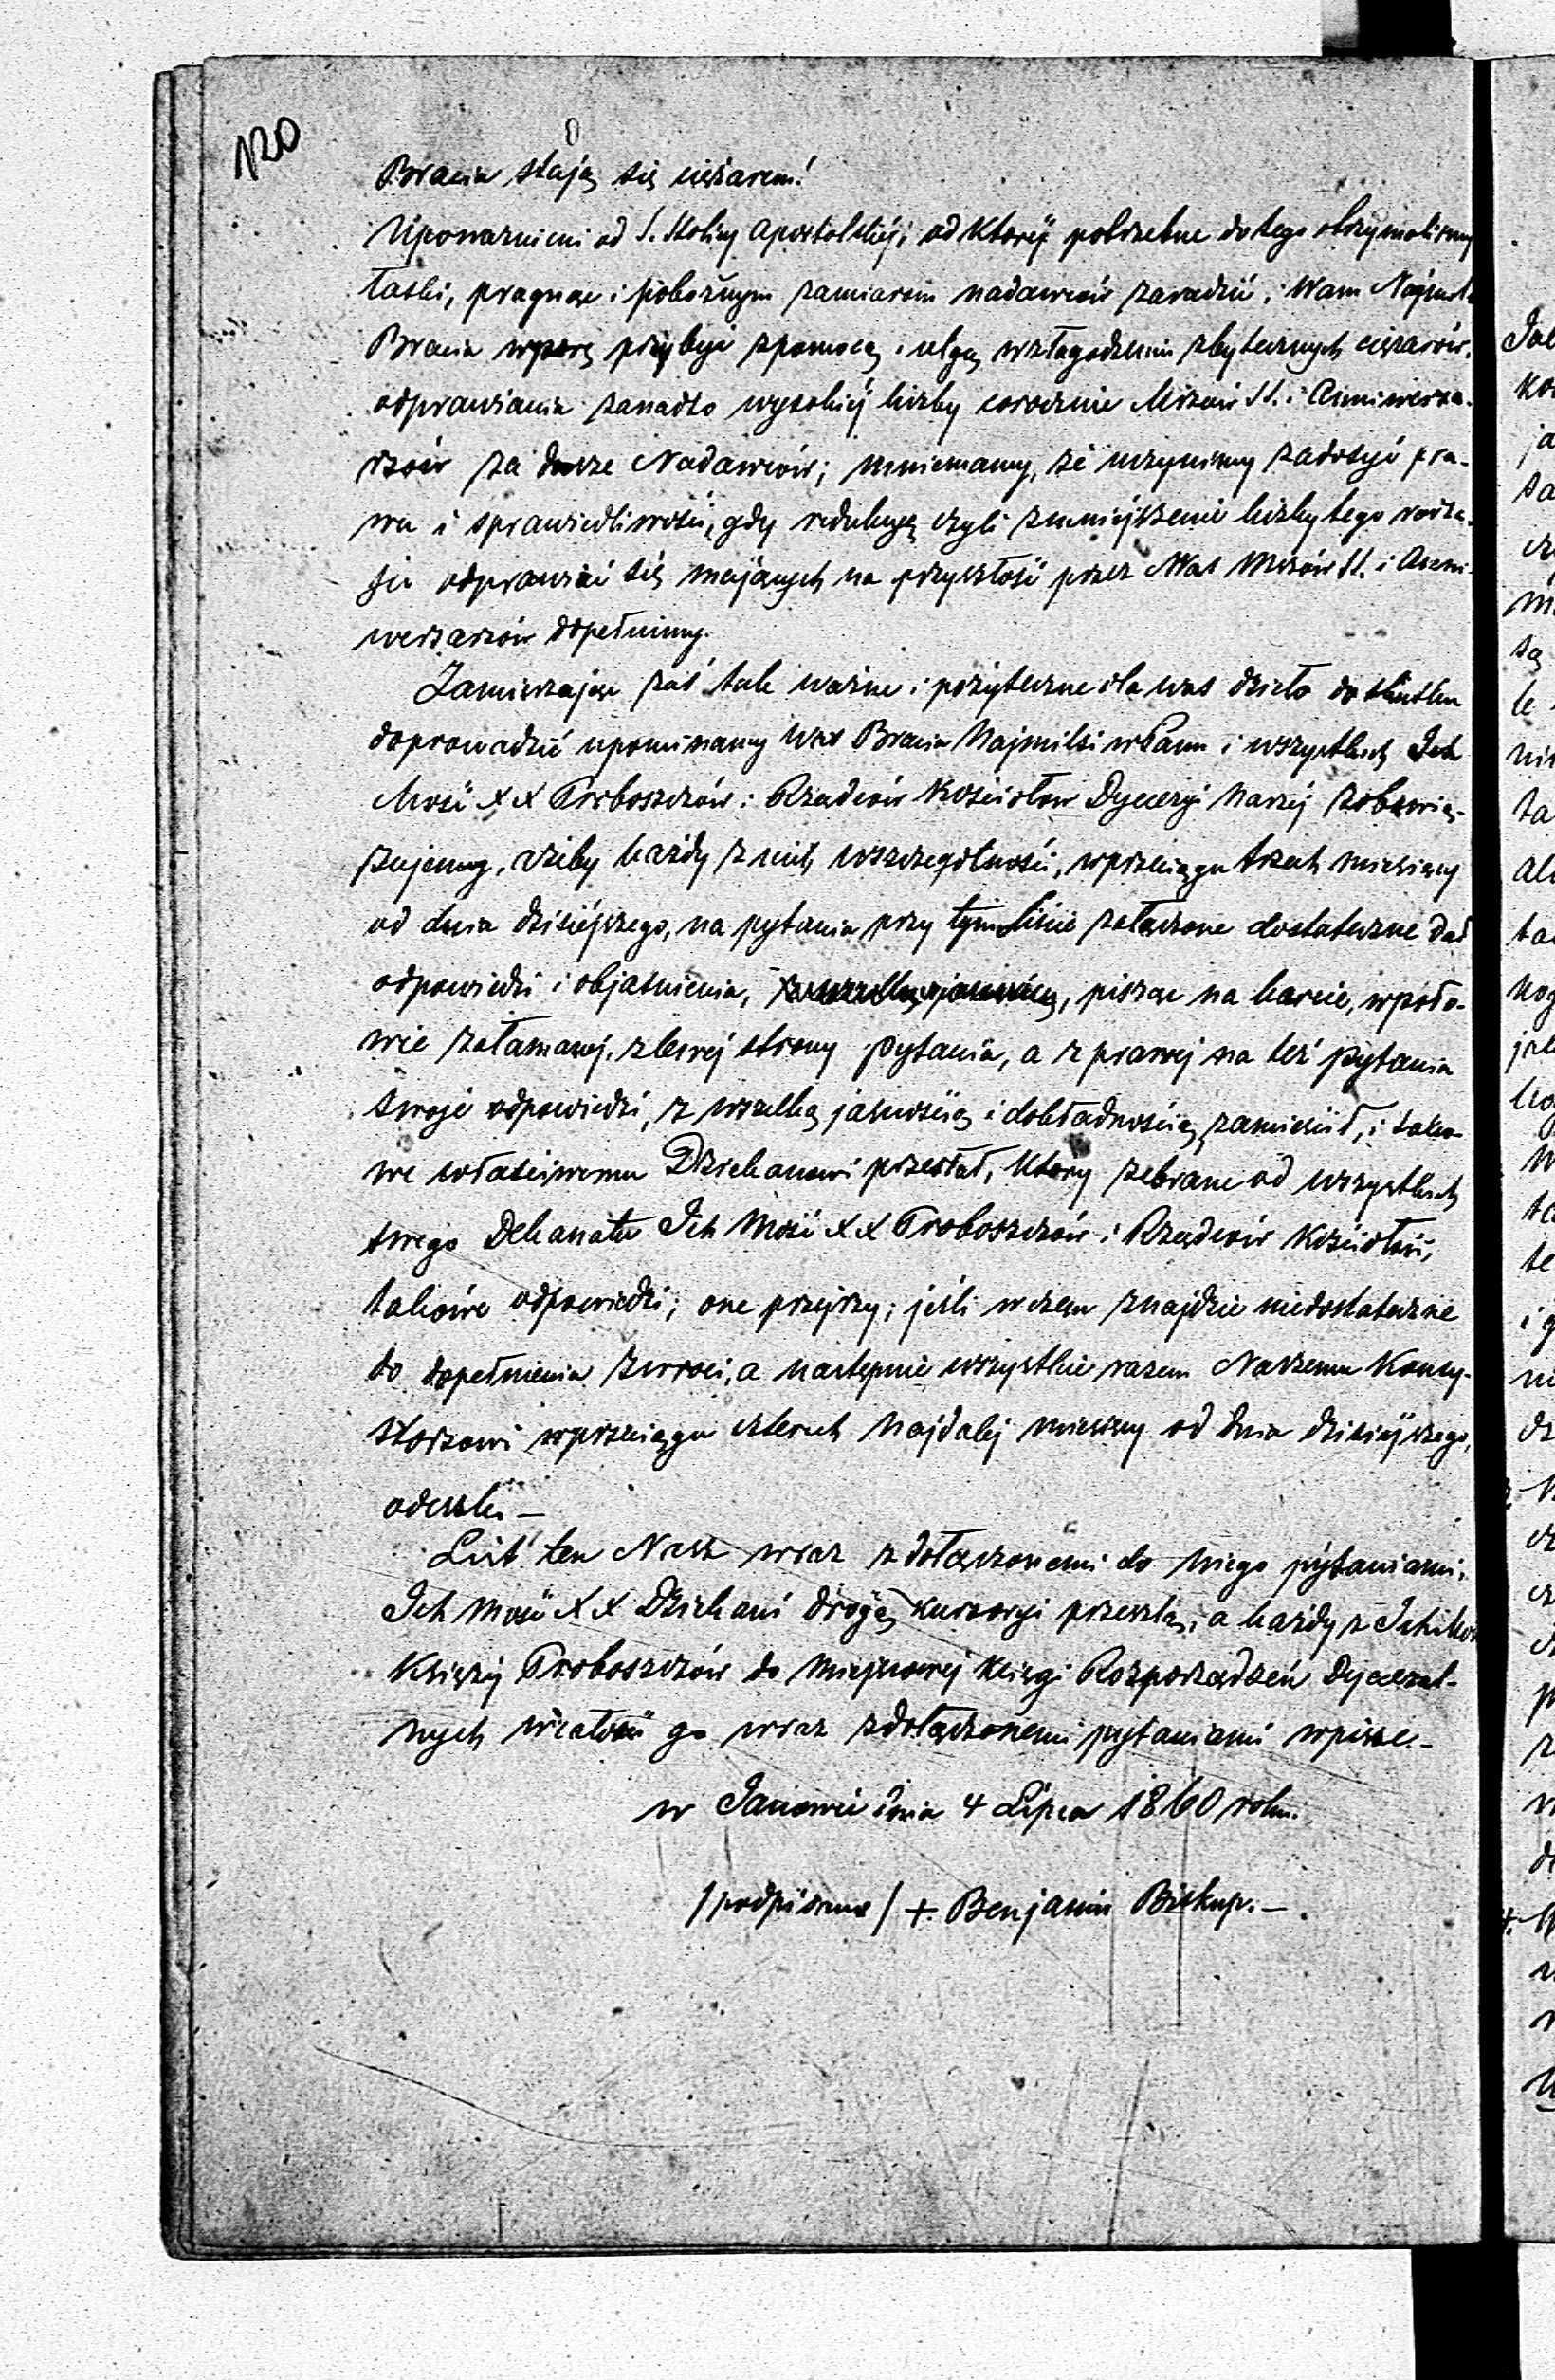 120
Bracia stają się ciężarem!
Upoważnieni od S. Stolicy Apostolskiej, od ktorej potrzebne do tego otrzymaliśmy
łaski, pragnąc i pobożnym zamiarom nadawców zaradzić, i Wam Najmil.
Bracia przybyć z pomocą i ulgą w złagodzeniu zbytecznych ciężarów,
odprawiania zanadto wysokiej liczby corocznie Mszów SS. i Anniwersa-
rzów za dusze Nadawców; mniemamy, że uczynimy zadosyć pra-
wu i sprawiedliwości, gdy redukcyą czyli zmniejszenie liczby tego rodza-
ju odprawiać się mających na przyszłość przez Was Mszów SS. i Anni-
werzarzów dopełnimy.
Zamierzając zaś tak ważne i pożyteczne dla was dzieło do skutku
doprowadzić upominamy Was Bracia Najmilsi w Panu i wszystkich Ich
Mość XX Proboszczów i Rządców Kościołów Dyecezyi Naszéj zobowią-
zujemy, ażeby każdy z nich w szczególności, w przeciągu trzech miesięcy
od dnia dzisiéjszego, na pytania przy tym Liście załączone dostateczne dał
odpowiedzi i objaśnienia, pisząc na karcie, w poło-
wie załamanej, z lewej strony pytania, a z prawej na też pytania
swoje odpowiedzi, z wszelką jasnością i dokładnością zamieścił, i tako-
we właściwemu Dziekanowi przesłał, ktory zebrane od wszystkich
swego Dekanatu Ich Mość XX Proboszczów i Rządców Kościołów,
takowe odpowiedzi; one przejrzy; jeśli w czem znajdzie niedostateczne
do dopełnienia zwroci, a następnie wszystkie razem Naszemu Konsy-
storzowi w przeciągu czterech najdalej miesięcy od dnia dzisiéjszego,
odeszle —
List ten Nasz wraz z dołączonemi do niego pytaniami,
Ich Mość XX Dziekani drogą kursoryi przeszlą, a każdy z Ich Mość
Księży Proboszczów do miejscowej Księgi Rozporządzeń Dyecezal-
nych w całości go wraz z dołączonemi pytaniami wpisze. —
w Janowie dnia 4 Lipca 1860 roku.
/podpisano/ +. Benjamin Biskup. —